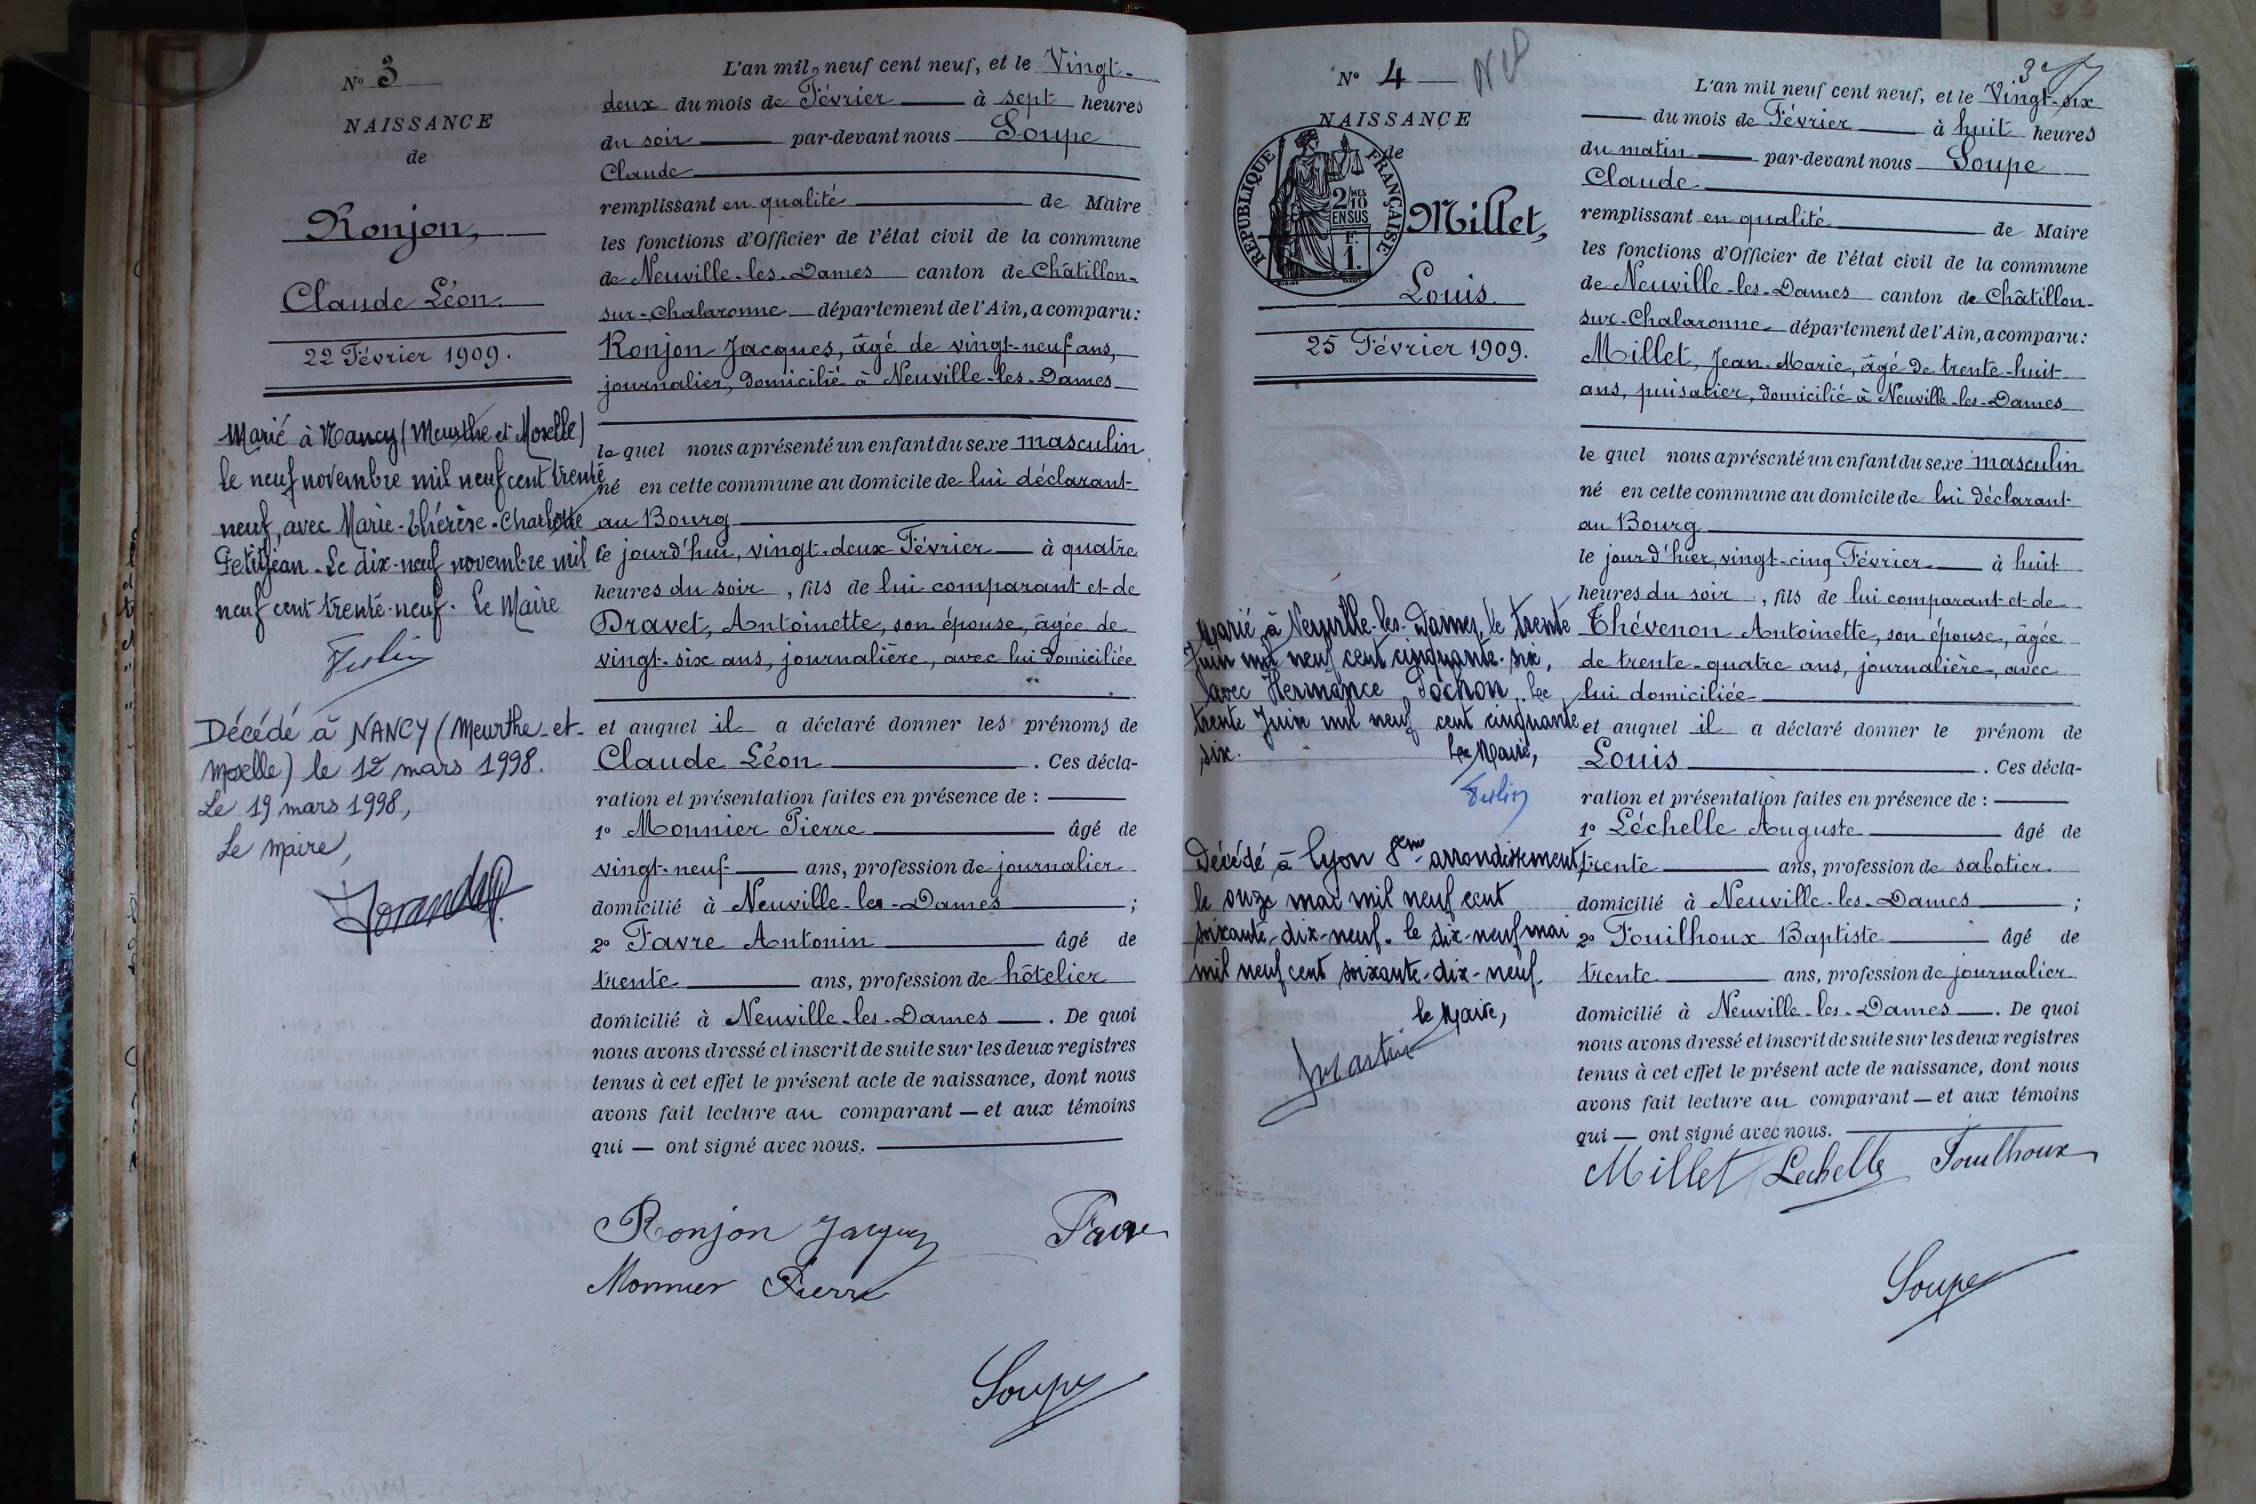 N° 3
NAISSANCE
de
Ronjon,
Claude Léon.
22 Février 1909.
Marié à Nancy (Meurthe et Moselle)
le neuf novembre mil neuf cent trente
neuf, avec Marie-Thérèse-Charlotte
Petitjean. Le dix-neuf novembre mil
neuf cent trente-neuf. Le Maire
Décédé à NANCY (Meurthe-et-
Moselle) le 12 mars 1998.
Le 19 mars 1998,
Le Maire,
L'an mil neuf cent neuf, et le Vingt-
deux du mois de Février à sept heures
du soir par-devant nous Soupe
Claude
remplissant en qualité de Maire
les fonctions d'Officier de l'état civil de la commune
de Neuville-les-Dames canton de Châtillon-
sur-Chalaronne département de l'Ain, a comparu:
Ronjon Jacques, âgé de vingt-neuf ans,
journalier, domicilié à Neuville-les-Dames
le quel nous a présenté un enfant du sexe masculin
né en cette commune au domicile de lui déclarant
au Bourg
ce jourd'hui, vingt-deux Février à quatre
heures du soir, fils de lui comparant et de
Dravet, Antoinette, son épouse, âgée de
vingt-six ans, journalière, avec lui domiciliée
et auquel il a déclaré donner les prénoms de
Claude Léon. Ces décla-
ration et présentation faites en présence de :
1° Monnier Pierre âgé de
vingt-neuf ans, profession de journalier
domicilié à Neuville-les-Dames ;
2° Favre Antonin âgé de
trente ans, profession de hôtelier
domicilié à Neuville-les-Dames. De quoi
nous avons dressé et inscrit de suite sur les deux registres
tenus à cet effet le présent acte de naissance, dont nous
avons fait lecture au comparant — et aux témoins
qui — ont signé avec nous.
Ronjon Jacques Favre
Monnier Pierre
Soupe
N° 4
NAISSANCE
de
REPUBLIQUE FRANÇAISE
2/10 MES
EN SUS
F.
1.
Millet,
Louis.
25 Février 1909.
Marié à Neuville-les-Dames, le trente
Juin mil neuf cent cinquante-six,
avec Hermance Pochon. Le
trente Juin mil neuf cent cinquante
six. Le Maire,
Décédé à Lyon 8eme arrondissement
le onze mai mil neuf cent
soixante-dix-neuf. le dix-neuf mai
mil neuf cent soixante-dix-neuf.
le Maire,
Martin
3
L'an mil neuf cent neuf, et le Vingt-six
du mois de Février à huit heures
du matin par-devant nous Soupe
Claude
remplissant en qualité de Maire
les fonctions d'Officier de l'état civil de la commune
de Neuville-les-Dames canton de Châtillon-
sur-Chalaronne département de l'Ain, a comparu:
Millet, Jean-Marie, âgé de trente-huit
ans, puisatier, domicilié à Neuville-les-Dames
le quel nous a présenté un enfant du sexe masculin
né en cette commune au domicile de lui déclarant
au Bourg
le jour d'hier, vingt-cinq Février à huit
heures du soir, fils de lui comparant et de
Thévenon Antoinette, son épouse, âgée
de trente-quatre ans, journalière, avec
lui domiciliée
et auquel il a déclaré donner le prénom de
Louis. Ces décla-
ration et présentation faites en présence de :
1° Léchelle Auguste âgé de
trente ans, profession de sabotier
domicilié à Neuville-les-Dames ;
2° Fouilhoux Baptiste âgé de
trente ans, profession de journalier
domicilié à Neuville-les-Dames. De quoi
nous avons dressé et inscrit de suite sur les deux registres
tenus à cet effet le présent acte de naissance, dont nous
avons fait lecture au comparant — et aux témoins
qui — ont signé avec nous.
Millet Lechelle Fouilhoux
Soupe